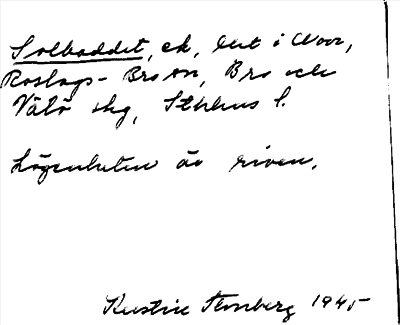 Solbaddet, ek, lut i Wor,
Roslags-Bro sn, Bro och
Vätö skg, Sthlms l.
Lägenheten är riven.
Kerstin Stenberg 1945